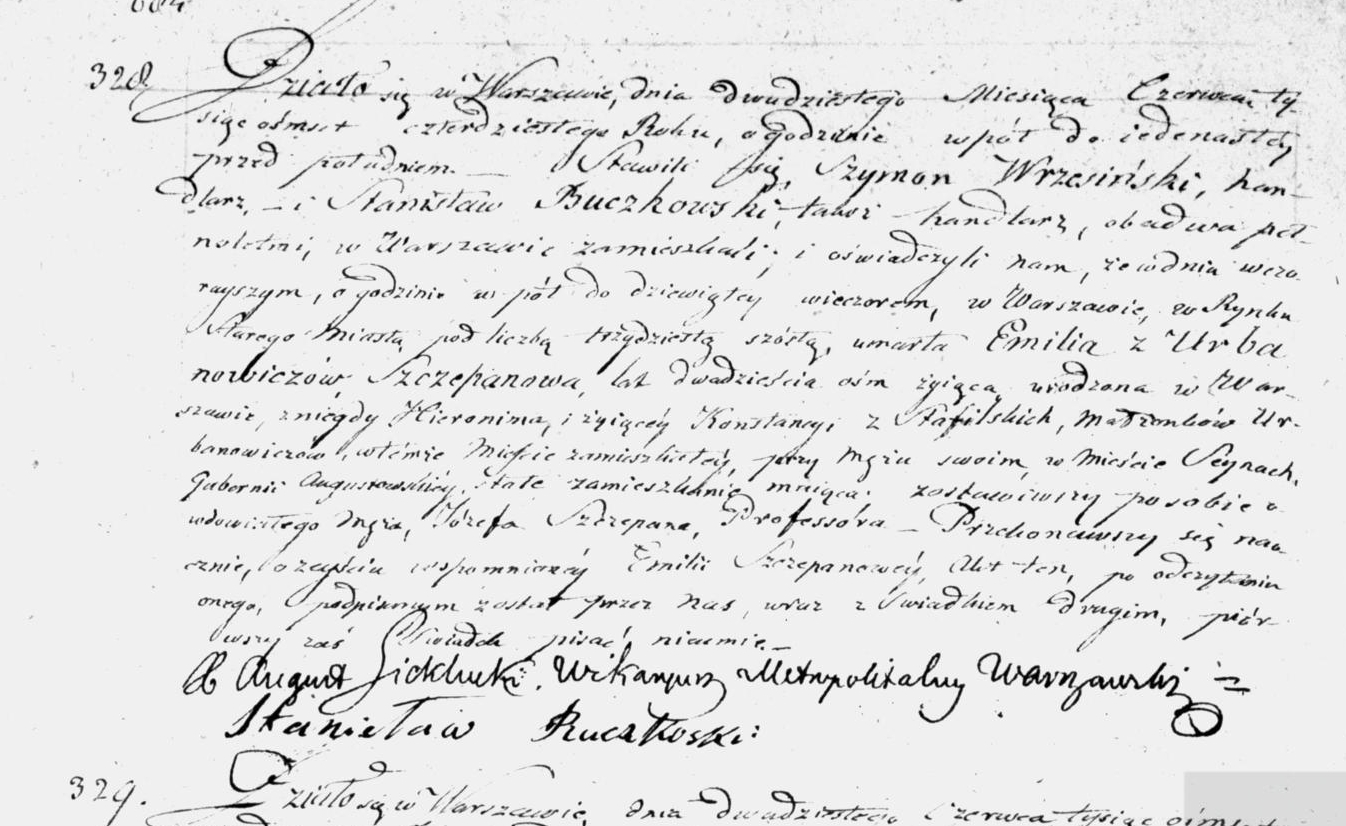 684
328. Działo się w Warszawie, dnia dwudziestego Miesiąca Czerwca ty
siąc ośmset czterdziestego Roku, o godzinie wpół do iedenastey
przed południem. — Stawili się, Szymon Wrzesiński, han-
dlarz, — i Stanisław Buczkowski, także handlarz, obadwa peł-
noletni, w Warszawie zamieszkali; i oświadczyli nam, że w dniu wczo
rayszym, o godzinie w pół do dziewiątey wieczorem, w Warszawie, w Rynku
Starego Miasta, pod liczbą trzydziestą szóstą, umarła Emilia z Urba
nowiczów Szczepanowa, lat dwadzieścia ośm żyiąca urodzona w War-
szawie, z niegdy Hieronima, i żyiącéy Konstancyi z Stafilskich, Małżonków Ur-
banowiczów, w témże Mieście zamieszkałéy, przy Mężu swoim, w Mieście Seynach,
Gubernii Augustowskiéy, stałe zamieszkanie maiąca. zostawiwszy po sobie o
wdowiałego Męża, Józefa Szczepana, Professóra — Przekonawszy się nao
cznie, o zeyściu wspomnionéy Emilii Szczepanowéy, Akt ten, po odczytaniu
onego, podpisanym został przez nas, wraz z Świadkiem drugim, piér-
wszy zaś Świadek pisać nieumie. —
X August Wikaryusz Metropolitalny Warszawski
Stanisław Buczkoski
329. Działo się w Warszawie, dnia dwudziestego Czerwca tysiąc ośmset